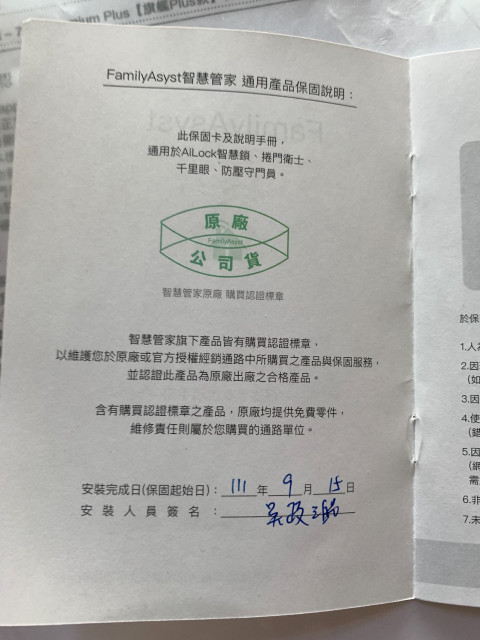 mium Plus【旗艦Plus款】
FamilyAsyst智慧管家 通用產品保固說明：
此保固卡及說明手冊，
通用於AiLock智慧鎖、捲門衛士、
千里眼、防壓守門員。
原廠
FamilyAsyst
公司貨
智慧管家原廠 購買認證標章
智慧管家旗下產品皆有購買認證標章，
以維護您於原廠或官方授權經銷通路中所購買之產品與保固服務，
並認證此產品為原廠出廠之合格產品。
含有購買認證標章之產品，原廠均提供免費零件，
維修責任則屬於您購買的通路單位。
安裝完成日(保固起始日)：111年9月15日
安裝人員簽名：吳政
於保
1.人為
2.因
(如
3.因
4.使
(錯
5.因
(網
需
6.非
7.未